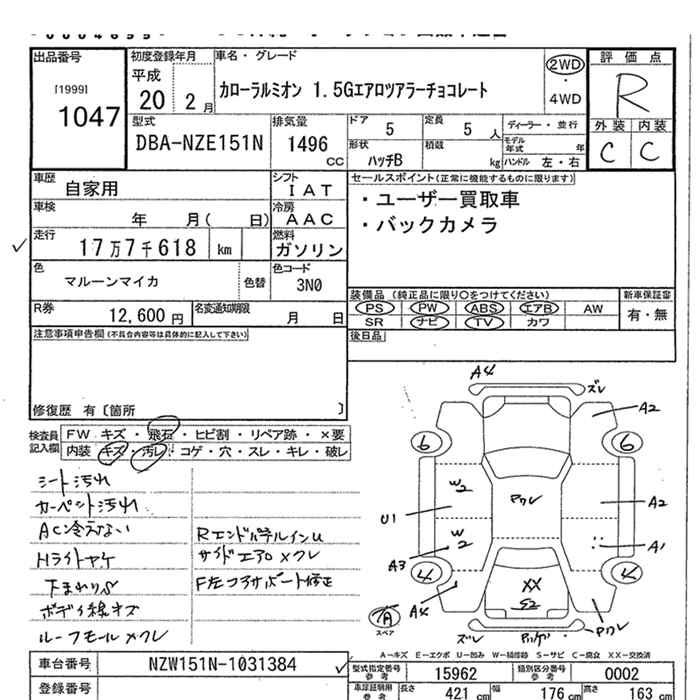 出品番号 初度登録年月 車名・グレード 評価点
[1999] 1047
平成 20 2月
カローラルミオン 1.5Gエアロツアラーチョコレート
2WD・4WD
R
外装 内装
C C
型式 DBA-NZE151N
排気量 1496 CC
ドア 5
定員 5 人
ディーラー・並行
形状 ハッチB
積載 kg
モデル年式 年
ハンドル 左・右
車歴 自家用
シフト IAT
セールスポイント(正常に機能するものに限ります)
・ユーザー買取車
・バックカメラ
車検 年 月( 日)
冷房 AAC
走行 17万7千618 km
燃料 ガソリン
色 マルーンマイカ 色替
色コード 3N0
装備品 (純正品に限り〇をつけてください) 新車保証書
PS PW ABS エアB AW 有・無
SR ナビ TV カワ
R券 12,600 円
名変通知期限 月 日
後日品
注意事項申告欄(不具合内容等は具体的に記入して下さい)
修復歴 有〔箇所 〕
検査員記入欄
FW キズ・飛石・ヒビ割・リペア跡・×要
内装 キズ・汚レ・コゲ・穴・スレ・キレ・破レ
シート汚れ
カーペント汚れ
AC冷えない
Hライトヤケ
下まわりS
ボディ線キズ
ルーフモールメクレ
RエンドパネルインU
サイドエアロメクレ
A4
ズレ
A2
6
6
W2
Pクレ
A2
U1
W2
A1
A3
4
4
XX
S2
A4
Pクレ
ズレ
スペア
A
A-キズ E-エクボ U-凹み W-補修跡 S-サビ C-腐食 XX-交換済
車台番号 NZW151N-1031384
型式指定番号 参考 15962
類別区分番号 参考 0002
登録番号
車庫証明用 参考
長さ 421 cm
幅 176 cm
高さ 163 cm